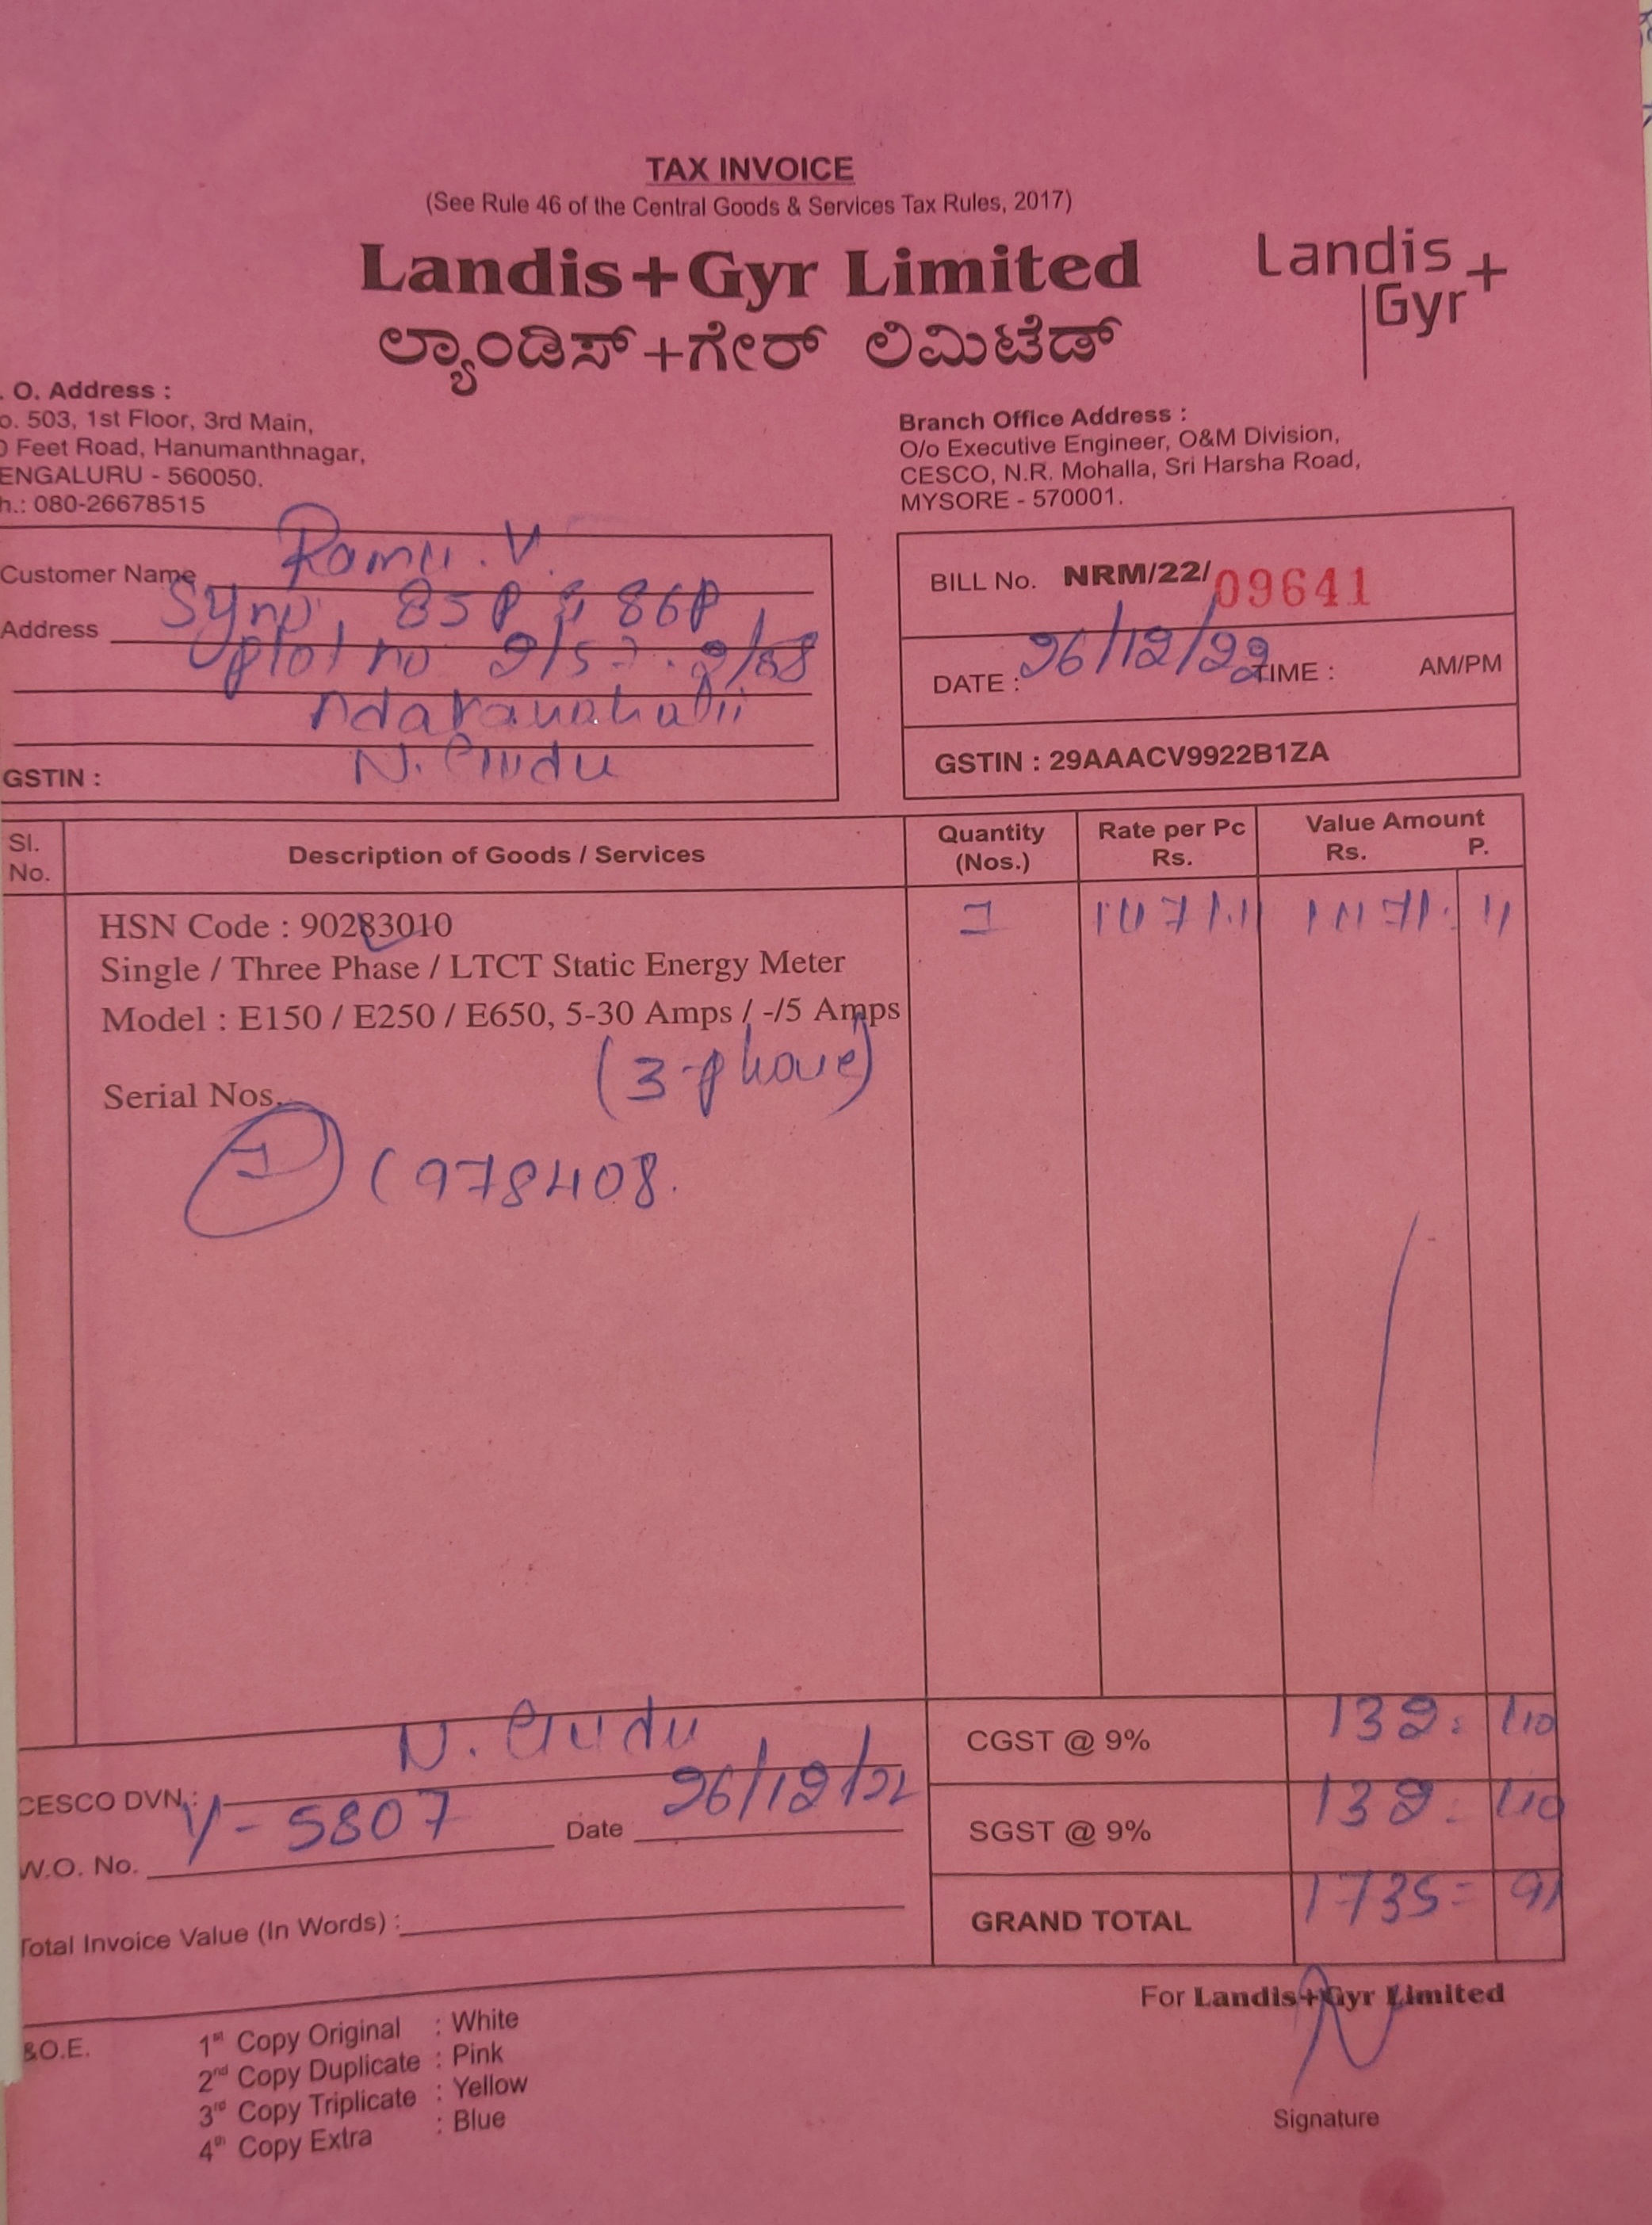 TAX INVOICE
(See Rule 46 of the Central Goods & Services Tax Rules, 2017)
Landis+Gyr Limited
ಲ್ಯಾಂಡಿಸ್+ಗೇರ್ ಲಿಮಿಟೆಡ್
Landis
Gyr+
. O. Address :
o. 503, 1st Floor, 3rd Main,
Feet Road, Hanumanthnagar,
ENGALURU - 560050.
h.: 080-26678515
Branch Office Address :
O/o Executive Engineer, O&M Division,
CESCO, N.R. Mohalla, Sri Harsha Road,
MYSORE - 570001.
Customer Name Ramu. V.
Address 85P & 86P
plot no
N.
GSTIN :
BILL No. NRM/22/09641
DATE : 26/12/22 TIME : AM/PM
GSTIN : 29AAACV9922B1ZA
Sl. No. Description of Goods / Services Quantity (Nos.) Rate per Pc Rs. Value Amount Rs. P.
HSN Code : 90283010 1
Single / Three Phase / LTCT Static Energy Meter
Model : E150 / E250 / E650, 5-30 Amps / -/5 Amps
(3-phase)
Serial Nos.
1 (978408.
CGST @ 9% 132
SGST @ 9% 132
GRAND TOTAL 1735= 91
CESCO DVN. : N.
W.O. No. Y-5807 Date 26/12/22
Total Invoice Value (In Words) :
For Landis+Gyr Limited
Signature
&O.E.
1st Copy Original : White
2nd Copy Duplicate : Pink
3rd Copy Triplicate : Yellow
4th Copy Extra : Blue